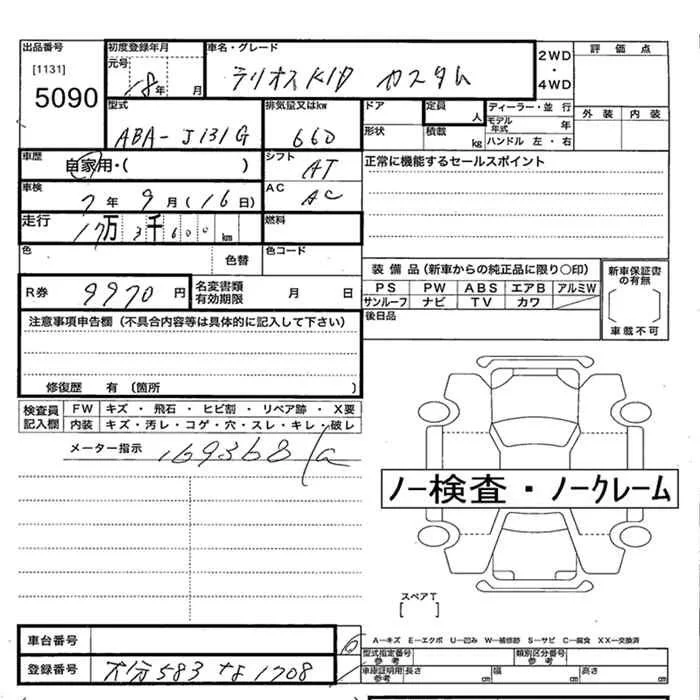 出品番号
[1131]
5090
初度登録年月
元号
18年 月
車名・グレード
テリオスKID カスタム
2WD
・
4WD
評価点
外装 内装
型式
ABA-J131G
排気量又はkw
660
ドア
形状
定員
人
積載
kg
ディーラー・並行
モデル年式 年
ハンドル 左・右
車歴
自家用・( )
シフト
AT
正常に機能するセールスポイント
車検
7年 9月(16日)
AC
AC
走行
17万 3千600km
燃料
色
色替
色コード
R券
9970円
名変書類
有効期限
月 日
装備品(新車からの純正品に限り〇印)
PS PW ABS エアB アルミW
サンルーフ ナビ TV カワ
後日品
新車保証書
の有無
車載不可
注意事項申告欄(不具合内容等は具体的に記入して下さい)
修復歴 有(箇所 )
検査員
記入欄
FW キズ・飛石・ヒビ割・リペア跡・X要
内装 キズ・汚レ・コゲ・穴・スレ・キレ・破レ
メーター指示
169368
ノー検査・ノークレーム
スペアT
[ ]
A―キズ E―エクボ U―凹み W―補修跡 S―サビ C―腐食 XX―交換済
車台番号
登録番号
大分583な1708
型式指定番号
参考
類別区分番号
参考
車庫証明用
参考
長さ cm 幅 cm 高さ cm